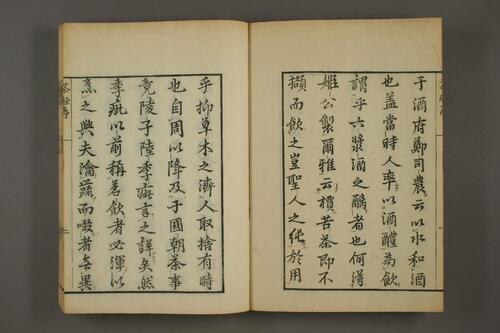 于酒府鄭司農云以水和酒
也盖當時人率以酒醴為飲
謂乎六漿酒之醨者也何得
姬公製爾雅云檟苦茶即不
擷而飲之豈聖人之純於用
乎抑草木之濟人取捨有時
也自周以降及于國朝茶事
竟陵子陸季疵言之詳矣然
季疵以前稱茗飲者必渾以
烹之與夫瀹蔬而啜者無異